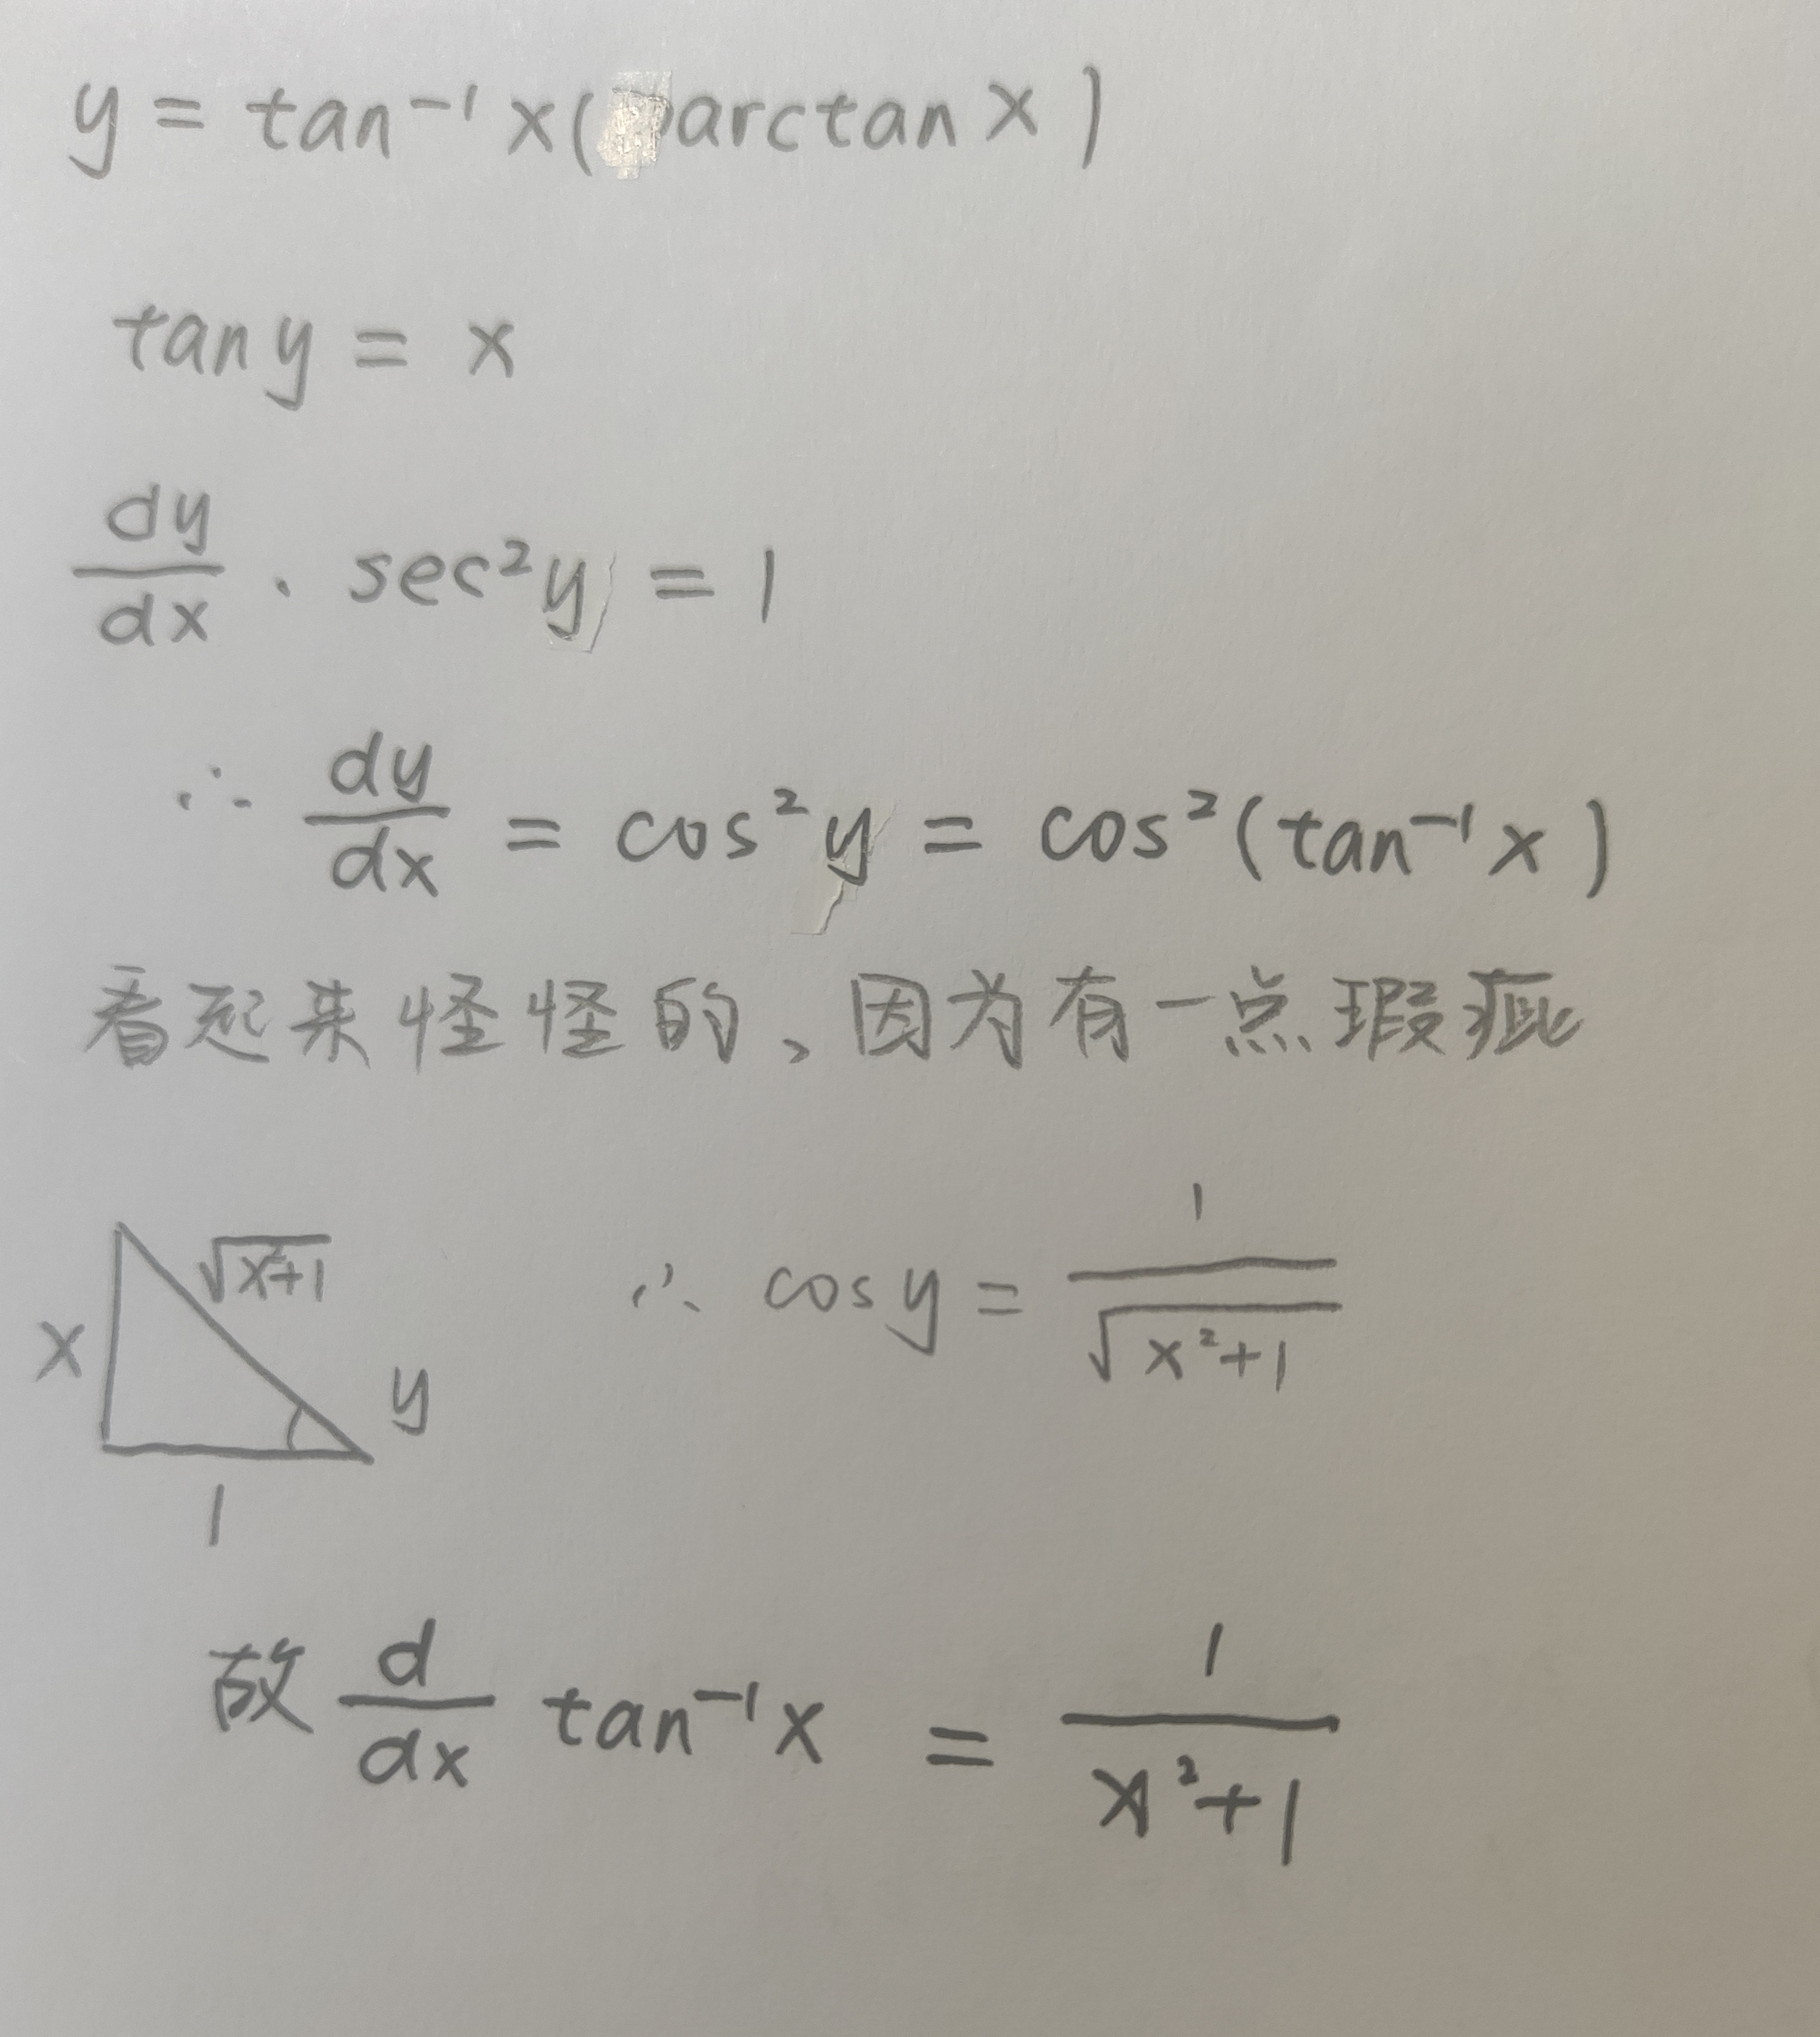 y = tan⁻¹x (arctan x)
tan y = x
dy/dx · sec²y = 1
∴ dy/dx = cos²y = cos²(tan⁻¹x)
看起来怪怪的、因为有一点瑕疵
√x²+1
x
y
1
∴ cos y = 1/√x²+1
故 d/dx tan⁻¹x = 1/x²+1